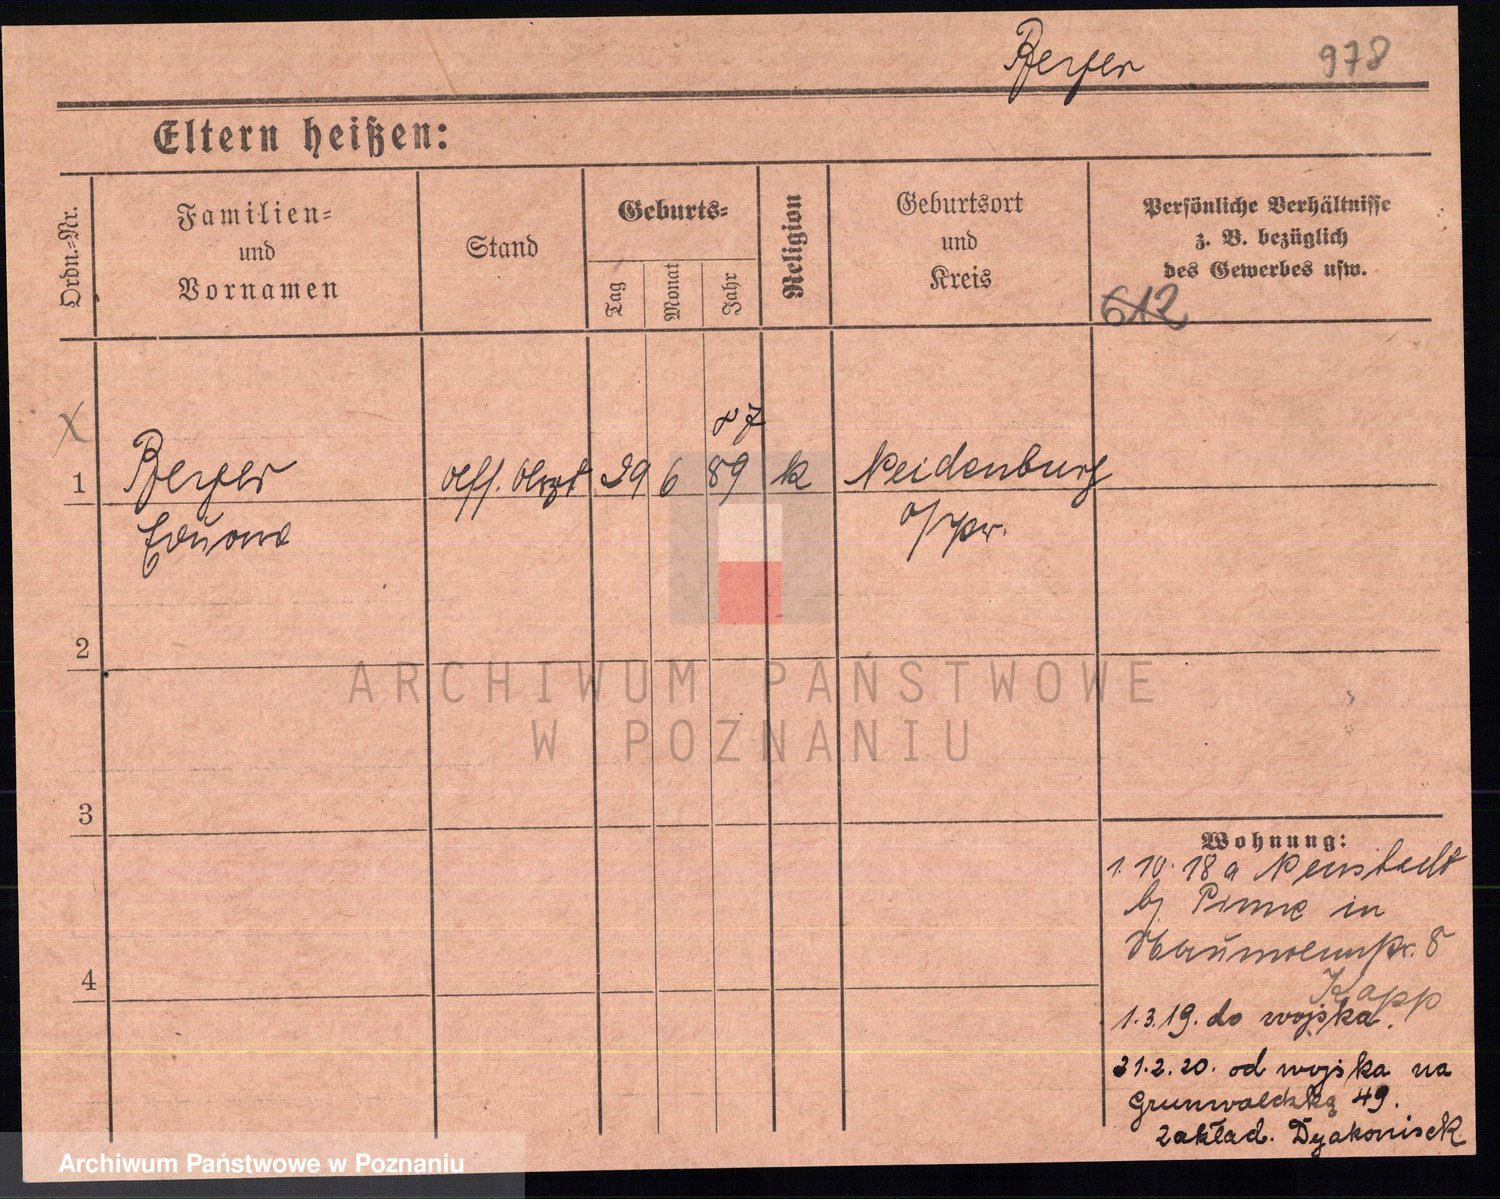 Berger 978
Eltern heißen:
Ordn.-Nr.
Familien=
und
Vornamen
Stand
Geburts=
Tag
Monat
Jahr
Religion
Geburtsort
und
Kreis
Persönliche Verhältnisse
z. B. bezüglich
des Gewerbes usw.
612
X
87
1 Berger 29 6 89 k Neidenburg
Eduard O/pr.
2
3
4
Wohnung:
1. 10. 18 a Neustadt
bj Pinne in
8
Kapp
1.3.19. do wojska.
21.2.20. od wojska na
Grunwaldzką 49.
zakład. Dyakonisek
ARCHIWUM PAŃSTWOWE
W POZNANIU
Archiwum Państwowe w Poznaniu